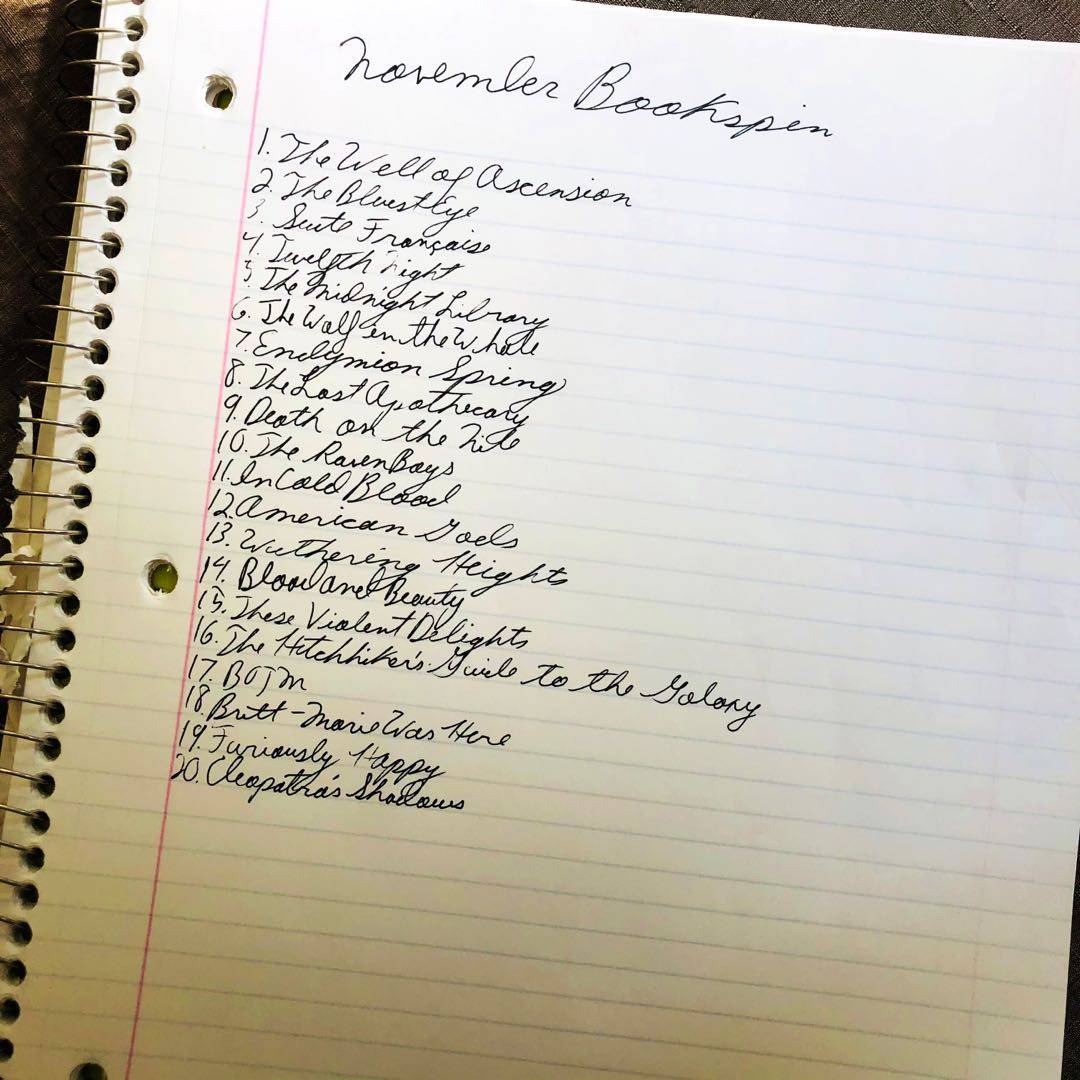 November Bookspin
1. The Well of Ascension
2. The Bluest Eye
3. Suite Française
4. Twelfth Night
5. The Midnight Library
6. The Wolf in the Whale
7. Endymion Spring
8. The Lost Apothecary
9. Death on the Nile
10. The Raven Boys
11. In Cold Blood
12. American Gods
13. Wuthering Heights
14. Blood and Beauty
15. These Violent Delights
16. The Hitchhiker's Guide to the Galaxy
17. BOTM
18. Britt-Marie Was Here
19. Furiously Happy
20. Cleopatra's Shadows